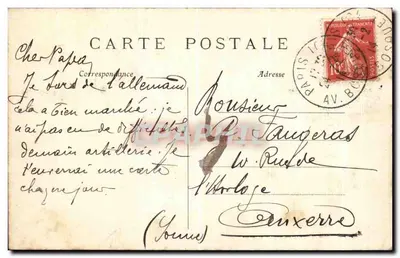 CARTE POSTALE
Correspondance
Adresse
Cher Papa
Je sors de l'allemand
cela a bien marché; je
n'ai pas eu de difficultés
demain artillerie. Je
t'enverrai une carte
chaque jour
Monsieur
P. Faugeras
Rue de
l'horloge
Auxerre
(Yonne)
PARIS
AV.